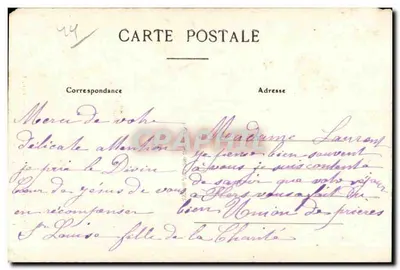 44
CARTE POSTALE
Correspondance
Adresse
Merci de votre
délicate attention
je prie le Divin
Cœur de Jésus de vous
en récompenser
Sr Louise fille de la Charité
Madame Laurent
je pense bien souvent
à vous je suis contente
de savoir que votre séjour
à vous a fait du
bien Union de prières